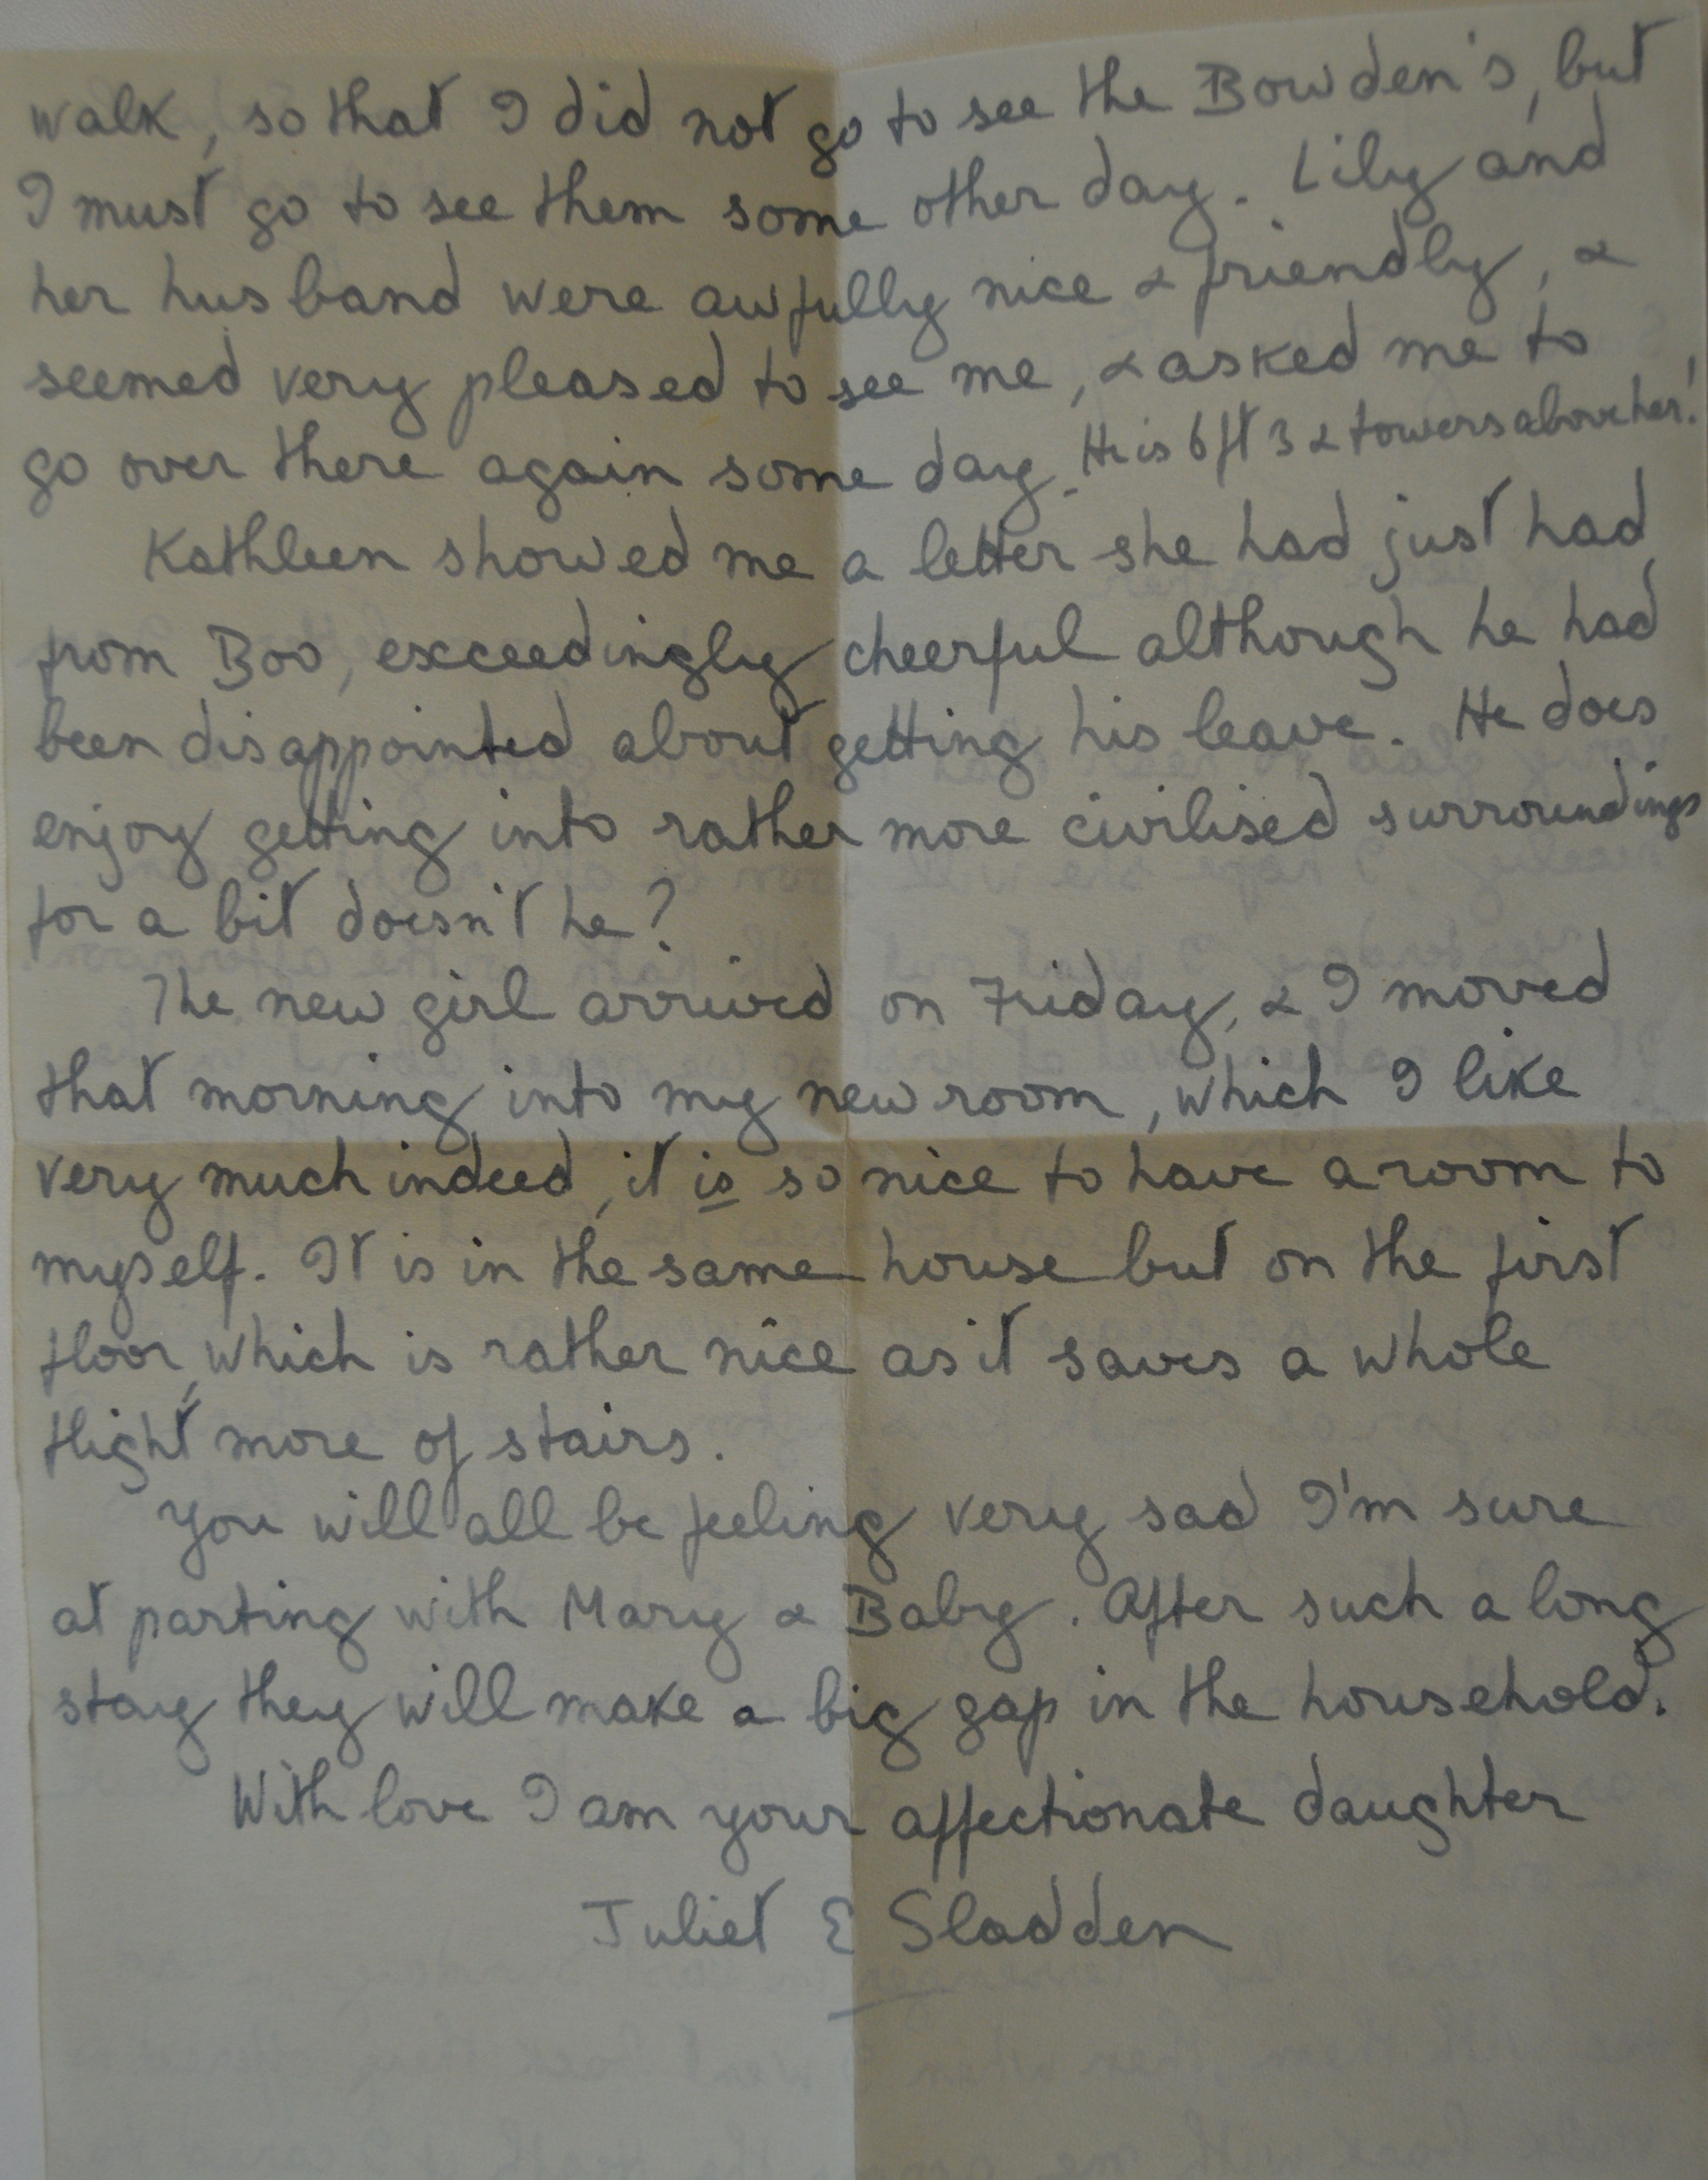 walk, so that I did not go to see the Bowden's, but
I must go to see them some other day. Lily and
her husband were awfully nice & friendly, &
seemed very pleased to see me, & asked me to
go over there again some day. He is 6 ft 3 & towers above her!
Kathleen showed me a letter she had just had
from Boo, exceedingly cheerful although he had
been disappointed about getting his leave. He does
enjoy getting into rather more civilised surroundings
for a bit doesn't he?
The new girl arrived on Friday, & I moved
that morning into my new room, which I like
very much indeed, it is so nice to have a room to
myself. It is in the same house but on the first
floor, which is rather nice as it saves a whole
flight more of stairs.
You will all be feeling very sad I'm sure
at parting with Mary & Baby. After such a long
stay they will make a big gap in the household.
With love I am your affectionate daughter
Juliet E Sladden